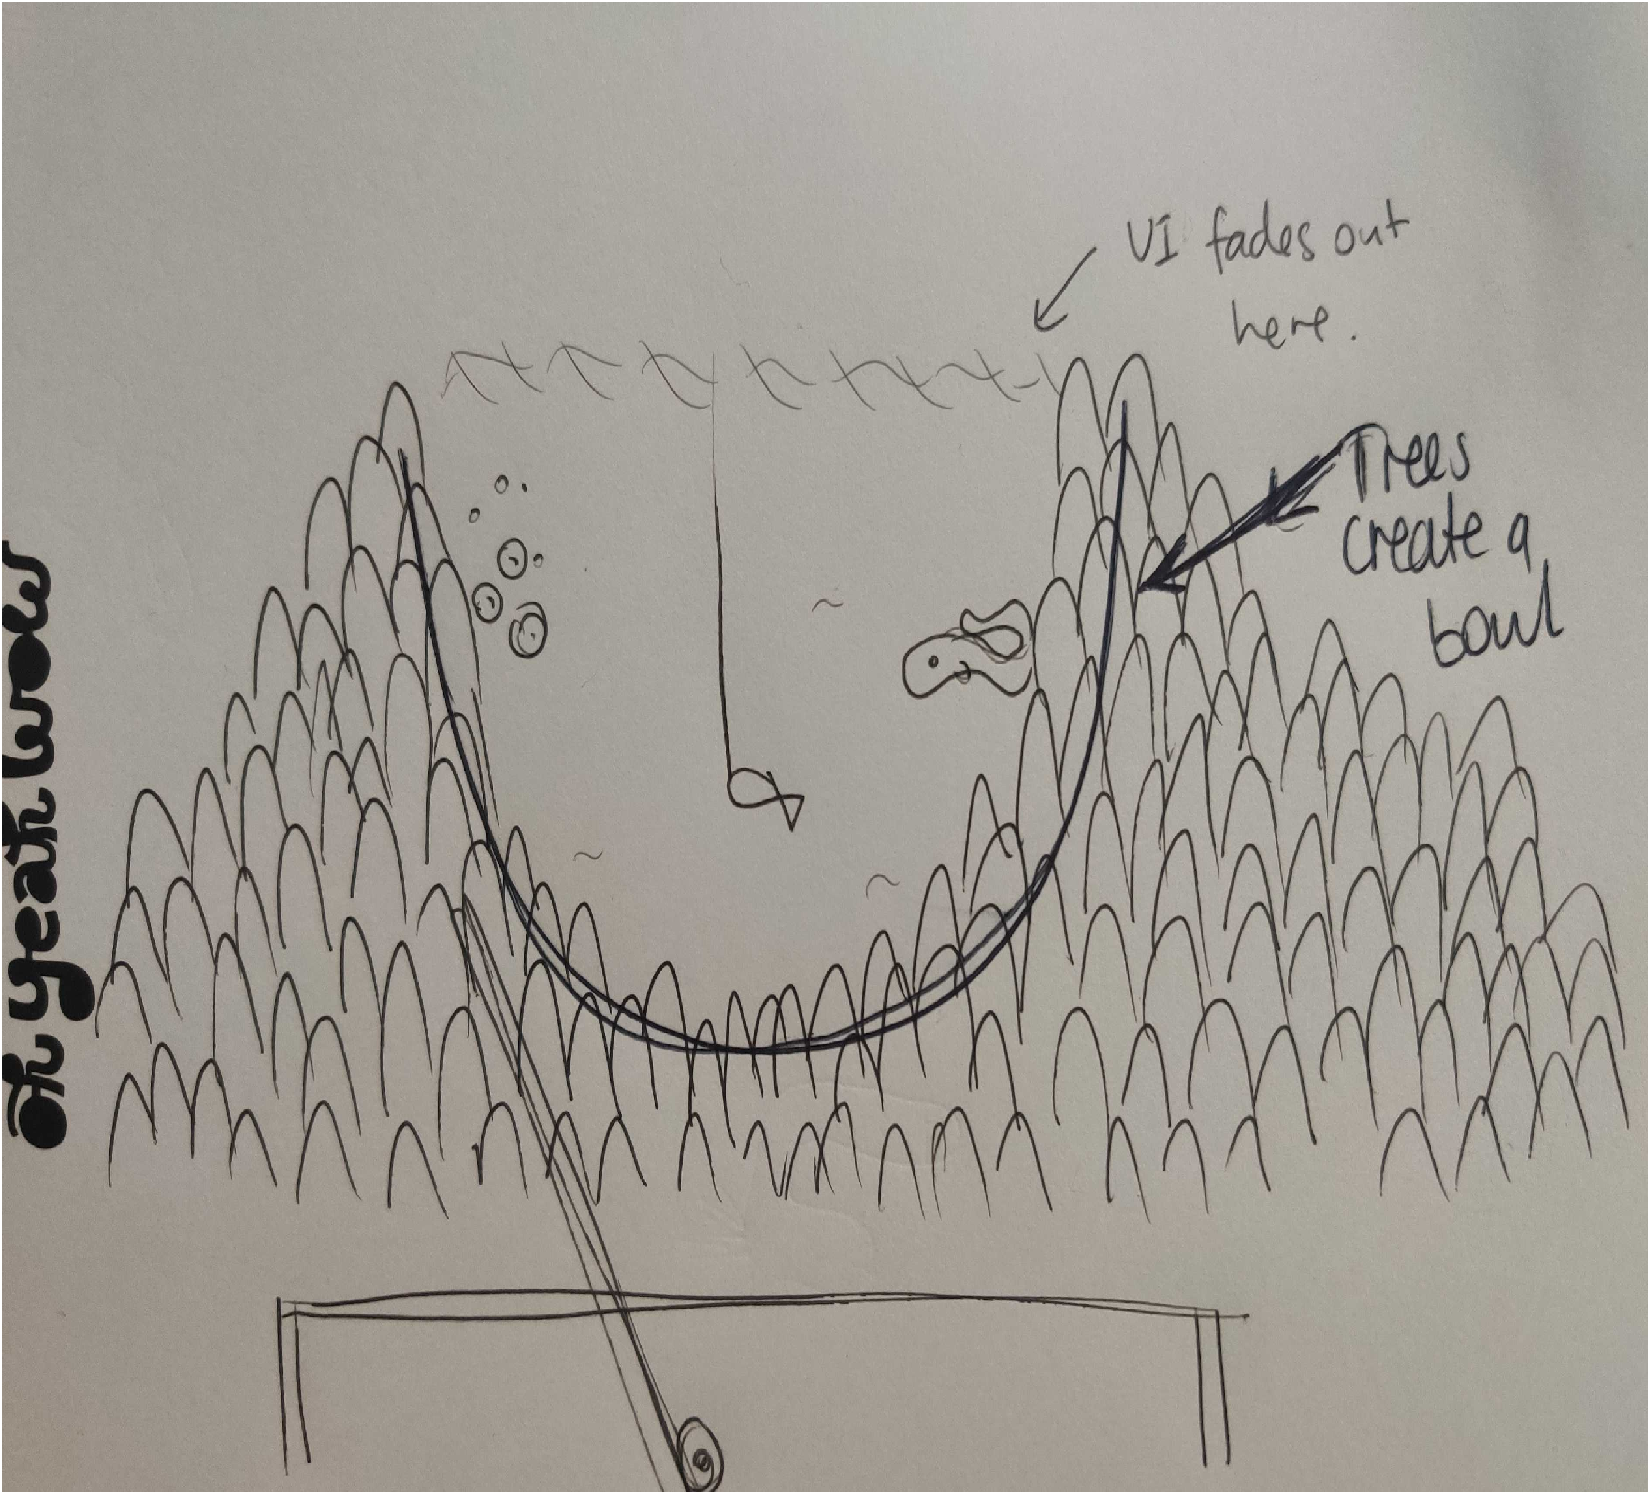 UI fades out
here.
Trees
create a
bowl
oh yeah wow